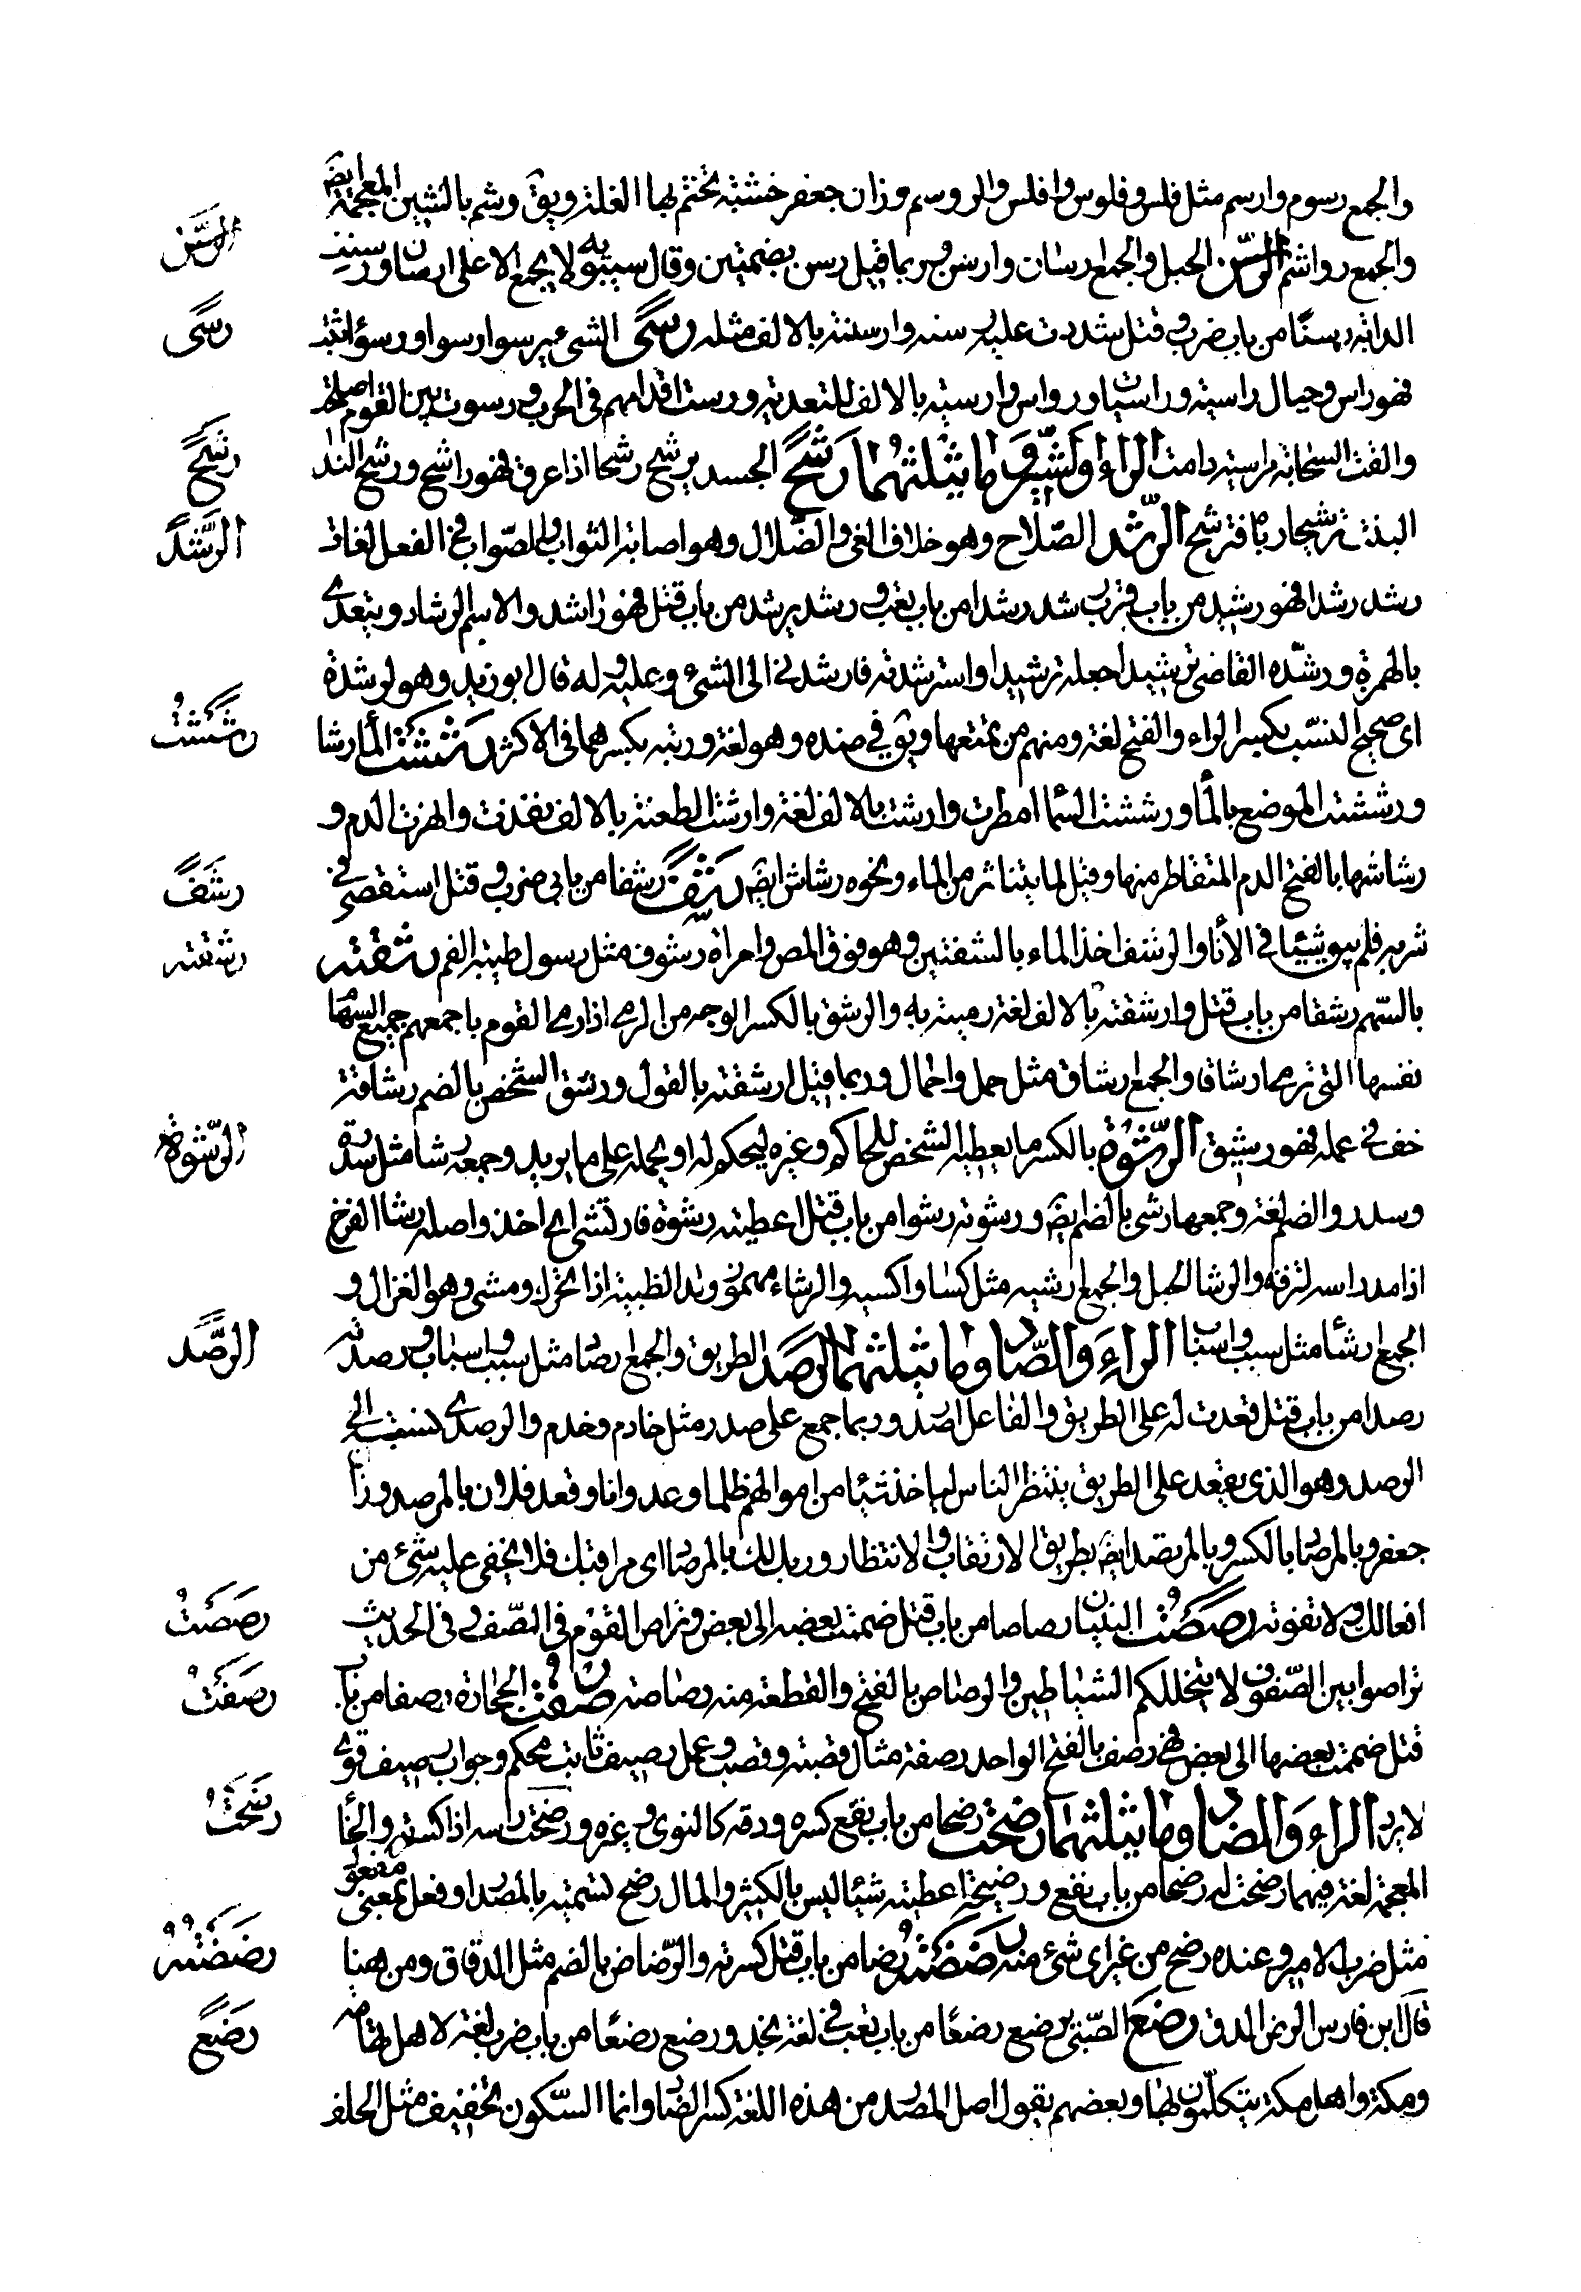 والجمع رسوم وارسم مثل فلس وفلوس وافلس والروسم وزان جعفر خشبة تختم بها الغلة ويق وشم بالشين المعجمة ايض
والجمع رواشم الرسن الحبل والجمع ارسان وارسن وربما قيل رسن بضمتين وقال سيبويه لا يجمع الا على ارسان ورسنت
الرسن
الدابة رسنًا من باب ضرب وقتل شددت عليه رسنه وارسنته بالالف مثله رسى الشئ يرسو ارسوا ورسوّا ثبت
رسى
فهو راس وجبال راسية وراسيات ورواس وارسيته بالالف للتعدية ورست اقدامهم فى الحرب ورسوت بين القوم اصلحت
والقت السحابة مراسيها دامت الراء والشين وما يثلثهما رشح الجسد يرشح رشحا اذا عرق فهو راشح ورشح الندا
رشح
النبت ترشيحا رباه فترشح الرشد الصّلاح وهو خلاف الغى والضّلال وهو اصابة الثواب والصّواب فى الفعل لغات
الرَّشد
رشد رشدا فهو رشيد من باب قرب رشد رشدا من باب تعب ورشد يرشد من باب قتل فهو راشد والاسم الرشاد ويتعدى
بالهمزة ورشّده القاضى ترشيدا جعله رشيدا واسترشدته فارشدنى الى الشئ وعليه وله قال ابو زيد وهو لرشدة
اى صحيح النسب بكسر الراء والفتح لغة ومنهم من يمنعها ويق فى ضده وهو لغية وزنية بكسرهما فى الاكثر رششت الما رشا
رششت
ورششت الموضع بالما ورششت السما امطرت وارشت بالالف لغة وارشت الطعنة بالالف نفذت وانهرت الدم و
رشاشها بالفتح الدم المتقاطر منها وقيل لما يتناثر من الماء ونحوه رشاش ايض رشف رشفا من بابى ضرب وقتل استقصى فى
رشف
شربه فلم يبق شيئا فى الأنا والرشف اخذ الماء بالشفتين وهو فوق المص وامراة رشوف مثل رسول طيبة الفم رشقته
رشقته
بالسّهم رشقا من باب قتل وارشقته بالالف لغة رميته به والرشق بالكسر الوجه من الرمى اذا رمى القوم باجمعهم جميع السهام
نفسها التى ترمى ارشاق والجمع ارشاق مثل حمل واحمال وربما قيل ارشقته بالقول ورشق الشخص بالضم رشاقة
خف فى عمله فهو رشيق الرّشوة بالكسر ما يعطيه الشخص للحاكم وغيره ليحكم له او يحمله على ما يريد وجمعه رشا مثل سدرة
الرّشوة
وسدر والضم لغة وجمعها رشى بالضم ايض ورشوته رشوا من باب قتل اعطيته رشوة فارتشى اى اخذ واصله رشا الفرخ
اذا مد راسه لتزقه والرشا الحبل والجمع ارشية مثل كسا واكسية والرشاء مهموز ولد الظبية اذا تحرك ومشى وهو الغزال و
الجمع ارشا مثل سبب واسباب الراء والصّاد وما يثلثهما الرصد الطريق والجمع ارصاد مثل سبب واسباب ورصدته
الرّصد
رصدا من باب قتل قعدت له على الطريق والفاعل راصد وربما جمع على رصد مثل خادم وخدم والرصدى نسبة الى
الرصد وهو الذى يقعد على الطريق ينتظر الناس لياخذ شيئا من اموالهم ظلما وعدوانا وقعد فلان بالمرصد وزان
جعفر وبالمرصاد بالكسر وبالمرتصد ايض بطريق الارتقاب والانتظار وربك لك بالمرصاد اى مراقبك فلا يخفى عليه شئ من
افعالك ولا تفوته رصصت البنيان رصاصا من باب قتل ضممت بعضه الى بعض وتراص القوم فى الصّف وفى الحديث
رصصت
تراصوا بين الصّفوف لا يتخللكم الشياطين والرصاص بالفتح والقطعة منه رصاصة رصفت الحجارة رصفا من باب
رصفت
قتل ضممت بعضها الى بعض فهى رصف بالفتح الواحد رصفة مثال قصبة وقصب وعمل رصيف ثابت محكم وجواب رصيف قوى
لا يرد الراء والضاد وما يثلثهما رضخت رضخا من باب نفع كسره ودقه كالنوى وغيره ورضخت راسه اذا كسرته والخا
رضخت
المعجمة لغة فيهما رضخت له رضخا من باب نفع ورضيخة اعطيته شيئا ليس بالكثير والمال رضخ تسمية بالمصدر او فعل بمعنى مفعول
مثل ضرب الامير وعنده رضخ من خير اى شئ منه رضضته رضا من باب قتل كسرته والرّضاض بالضم مثل الدقاق ومن هنا
رضضته
قال ابن فارس الرض الدق رضع الصّبى يرضع رضعًا من باب تعب فى لغة نجد ورضع رضعًا من باب ضرب لغة لاهل تهامة
رضع
ومكة واهل مكة يتكلمون بها وبعضهم يقول اصل المصدر من هذه اللغة كسر الضاد وانما السّكون تخفيف مثل الحلف